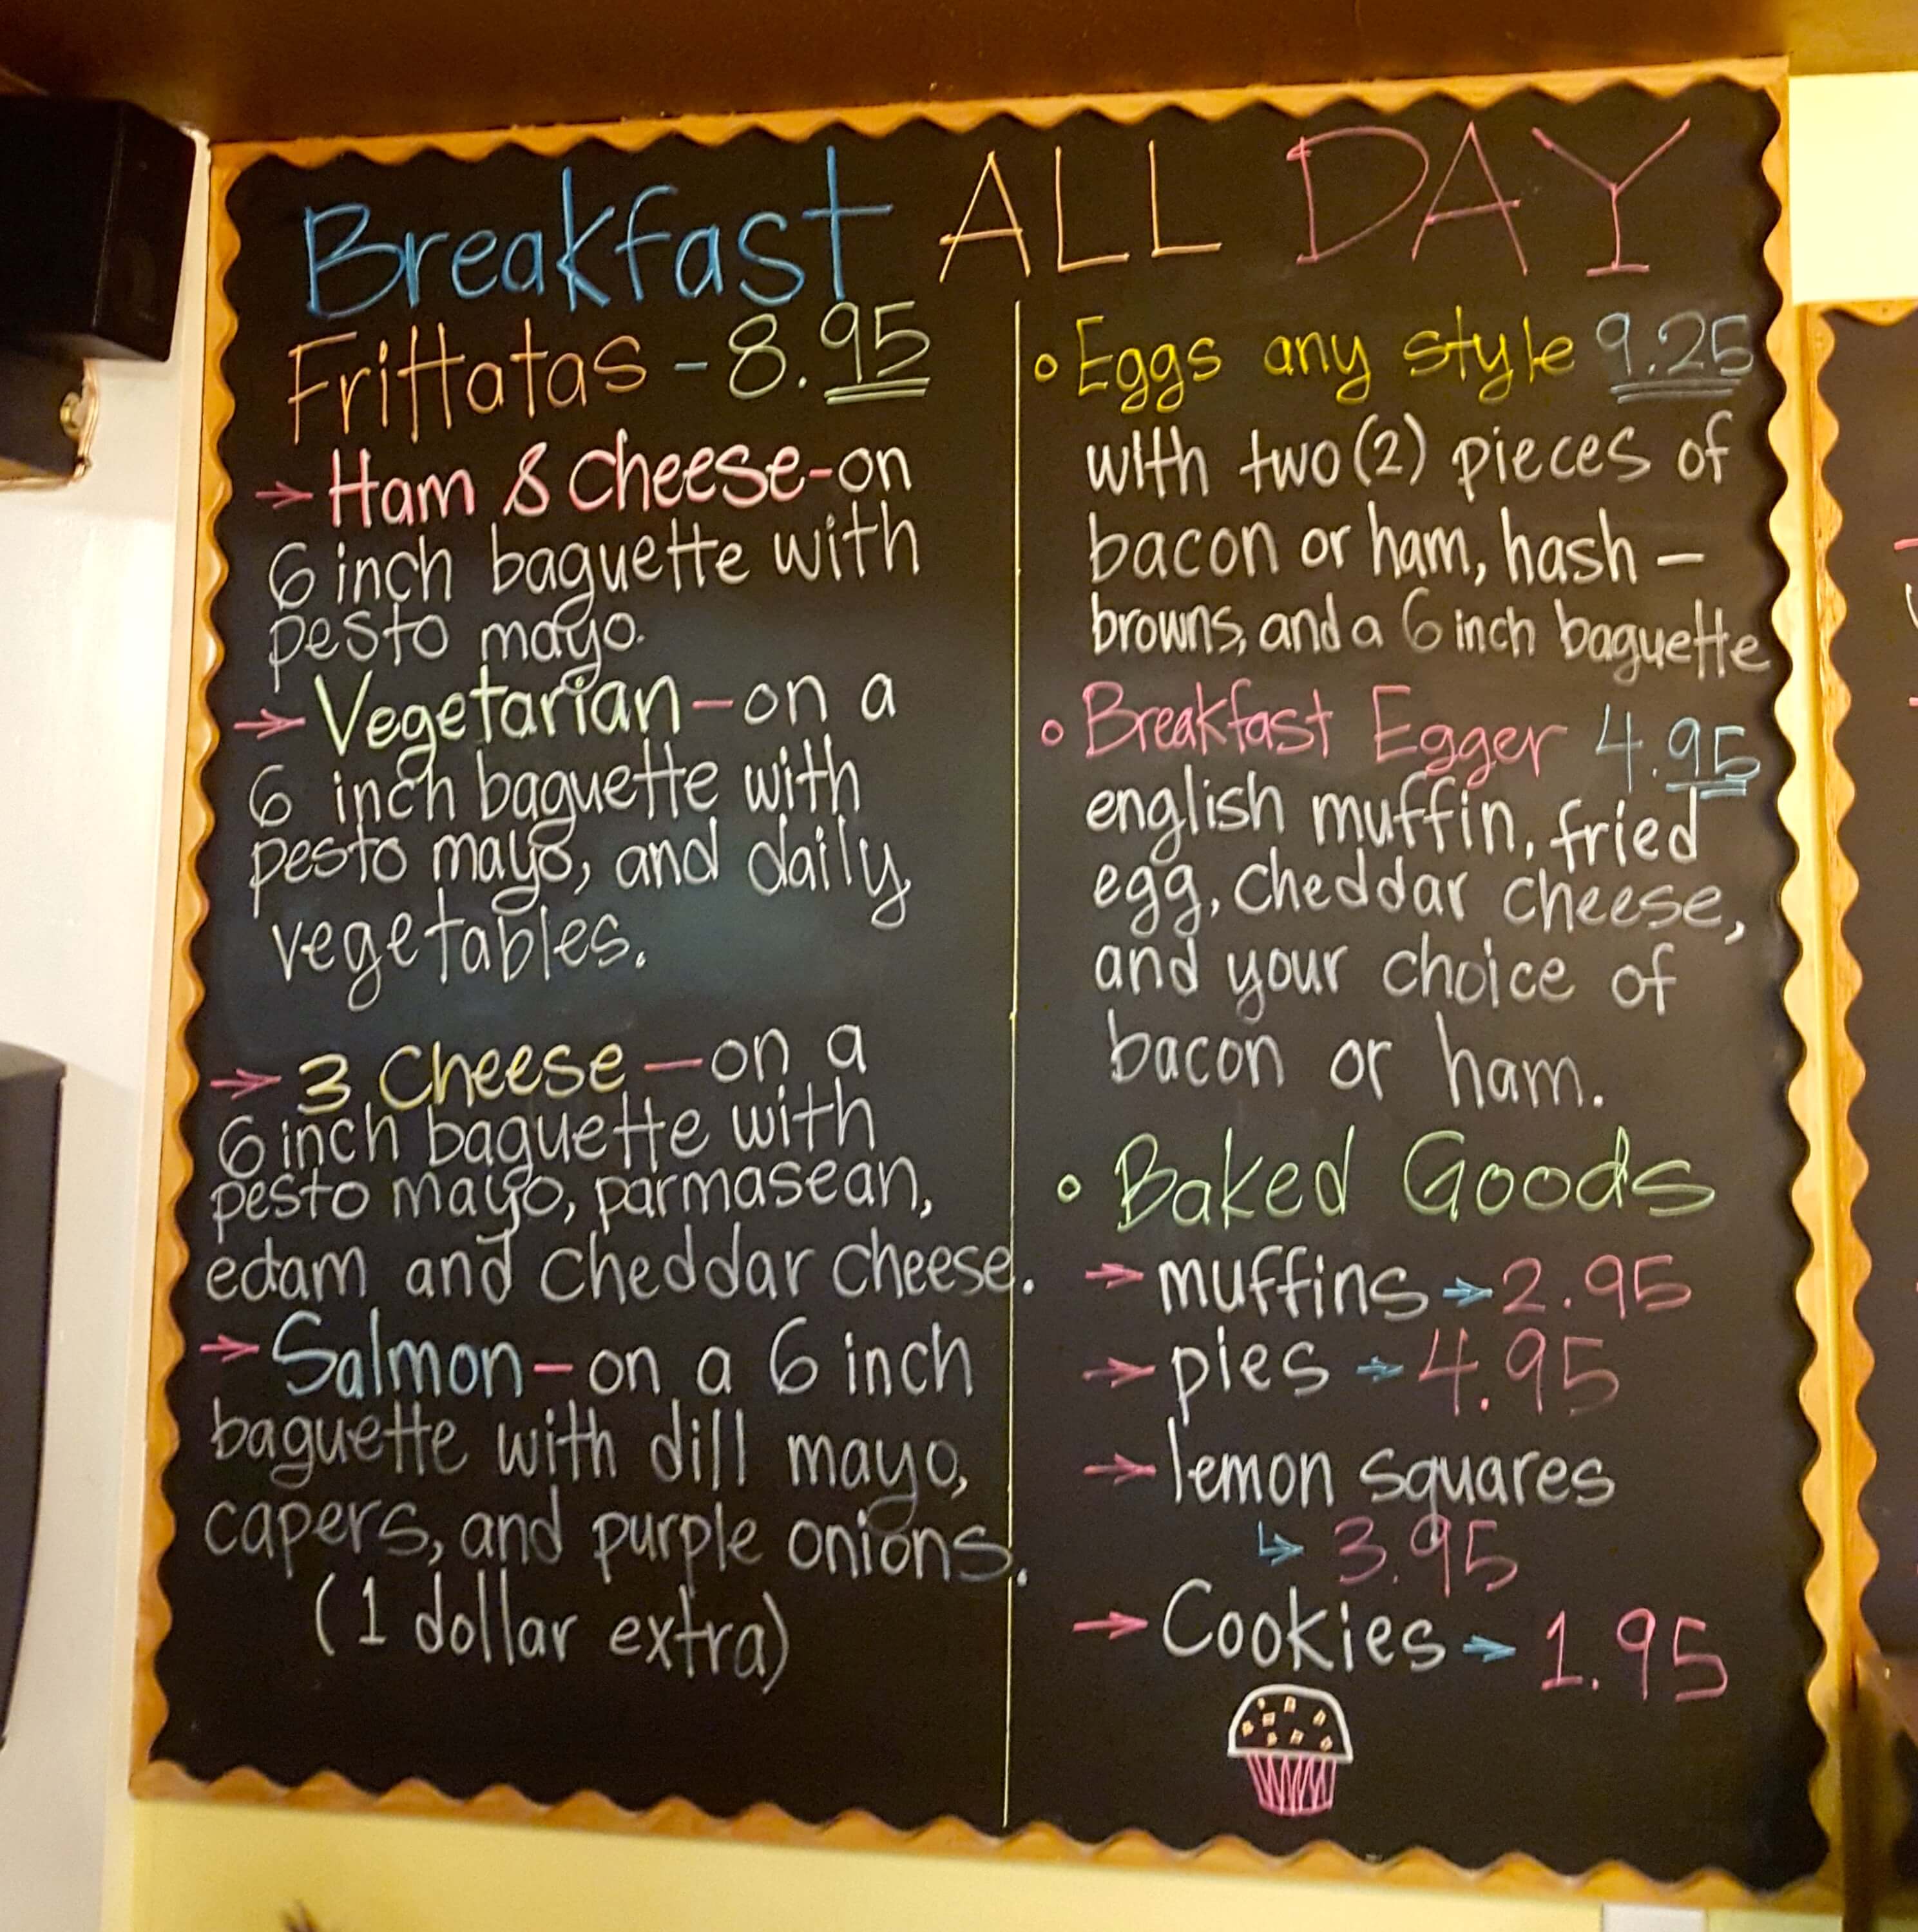 Breakfast ALL DAY
Frittatas - 8.95
→ Ham & Cheese - on
6 inch baguette with
pesto mayo.
→ Vegetarian - on a
6 inch baguette with
pesto mayo, and daily
vegetables.
→ 3 Cheese - on a
6 inch baguette with
pesto mayo, parmasean,
edam and cheddar cheese.
→ Salmon - on a 6 inch
baguette with dill mayo,
capers, and purple onions.
(1 dollar extra)
◦ Eggs any style 9.25
with two (2) pieces of
bacon or ham, hash -
browns, and a 6 inch baguette
◦ Breakfast Egger 4.95
english muffin, fried
egg, cheddar cheese,
and your choice of
bacon or ham.
◦ Baked Goods
→ muffins → 2.95
→ pies → 4.95
→ lemon squares
↳ 3.95
→ Cookies → 1.95